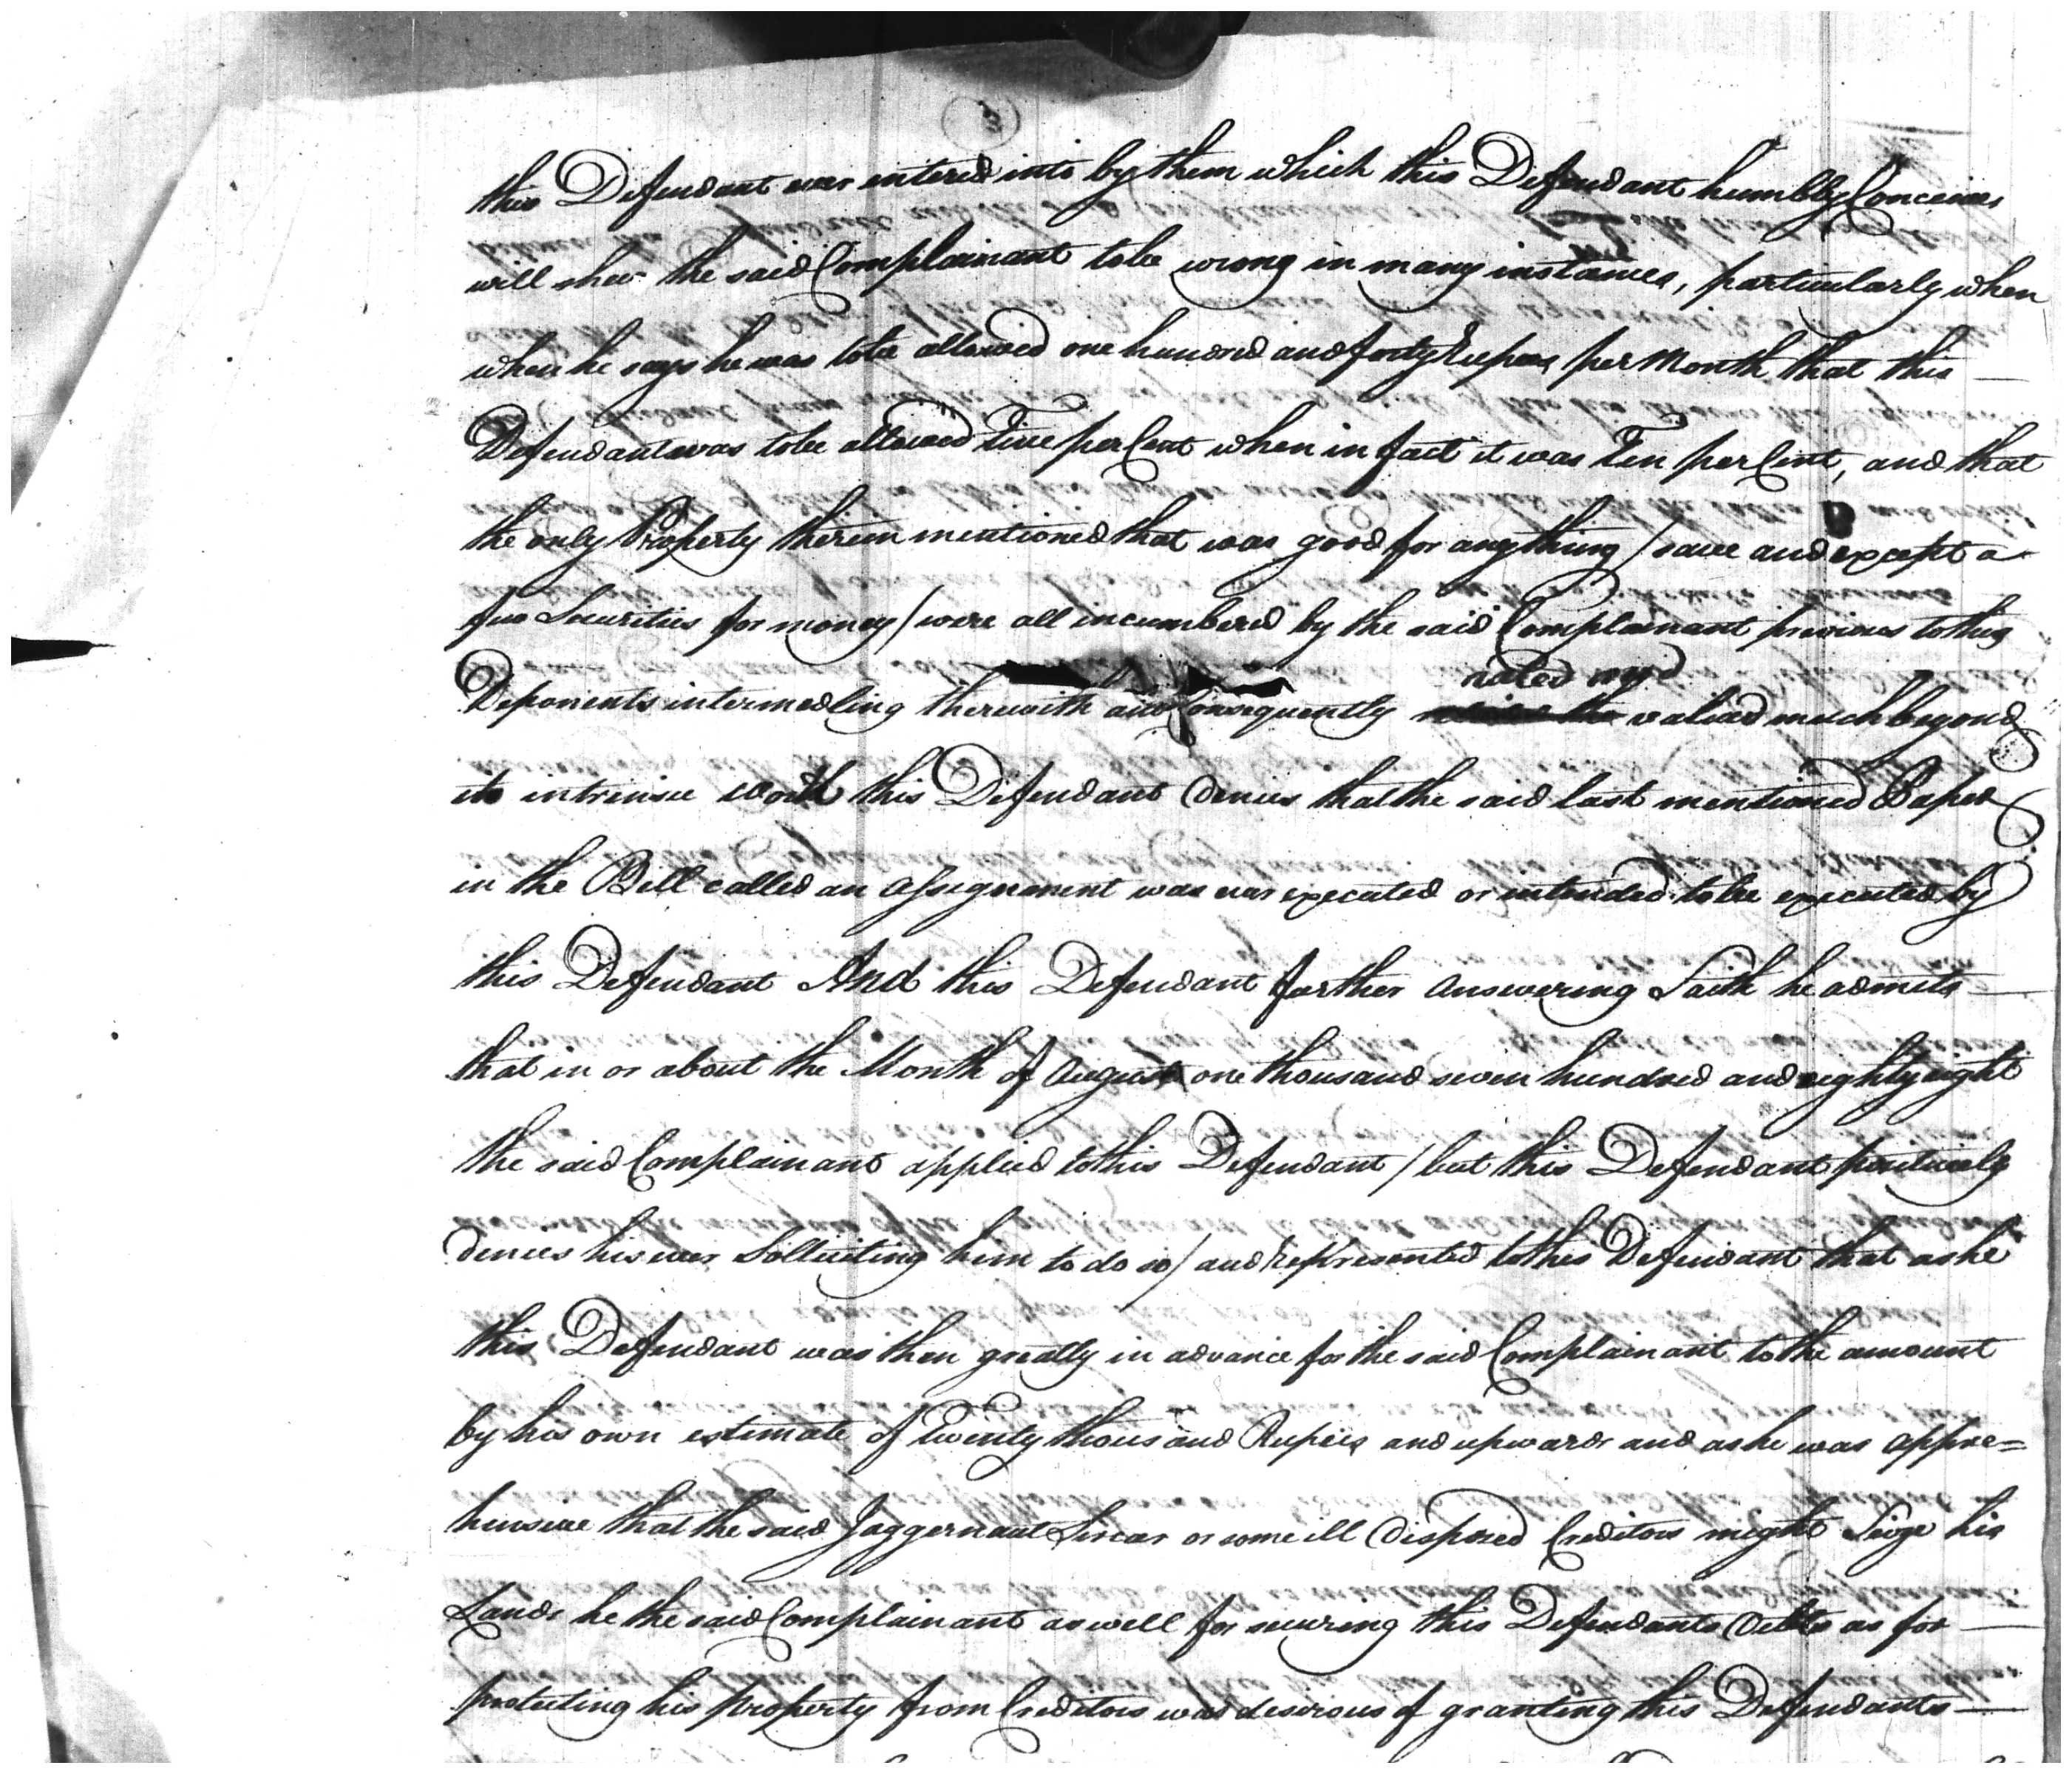 this Defendant ever entered into by them which this Defendant humbly Conceives
will shew the said Complainant to be wrong in many instances, particularly when
when he says he was to be allowed one hundred and forty Rupees per Month that this
Defendant was to be allowed Five per Cent when in fact it was Ten per Cent, and that
the only Property therein mentioned that was good for anything / save and except a
few Securities for money / were all incumbered by the said Complainant previous to this
Deponents intermedling therewith and Consequently valued much beyond
its intrinsic worth this Defendant denies that the said last mentioned Paper
in the Bill called an Assignment was ever executed or intended to be executed by
this Defendant And this Defendant further Answering Saith he admits
that in or about the Month of August one thousand seven hundred and eighty eight
the said Complainant applied to this Defendant / but this Defendant positively
denies his ever Solliciting him to do so / and Represented to this Defendant that as he
this Defendant was then greatly in advance for the said Complainant to the amount
by his own estimate of Twenty thousand Rupees and upwards and as he was appre=
hensive that the said Jaggernaut Sircar or some ill disposed Creditors might Seize his
Lands he the said Complainant as well for securing this Defendants debts as for
protecting his property from Creditors was desirous of granting this Defendants